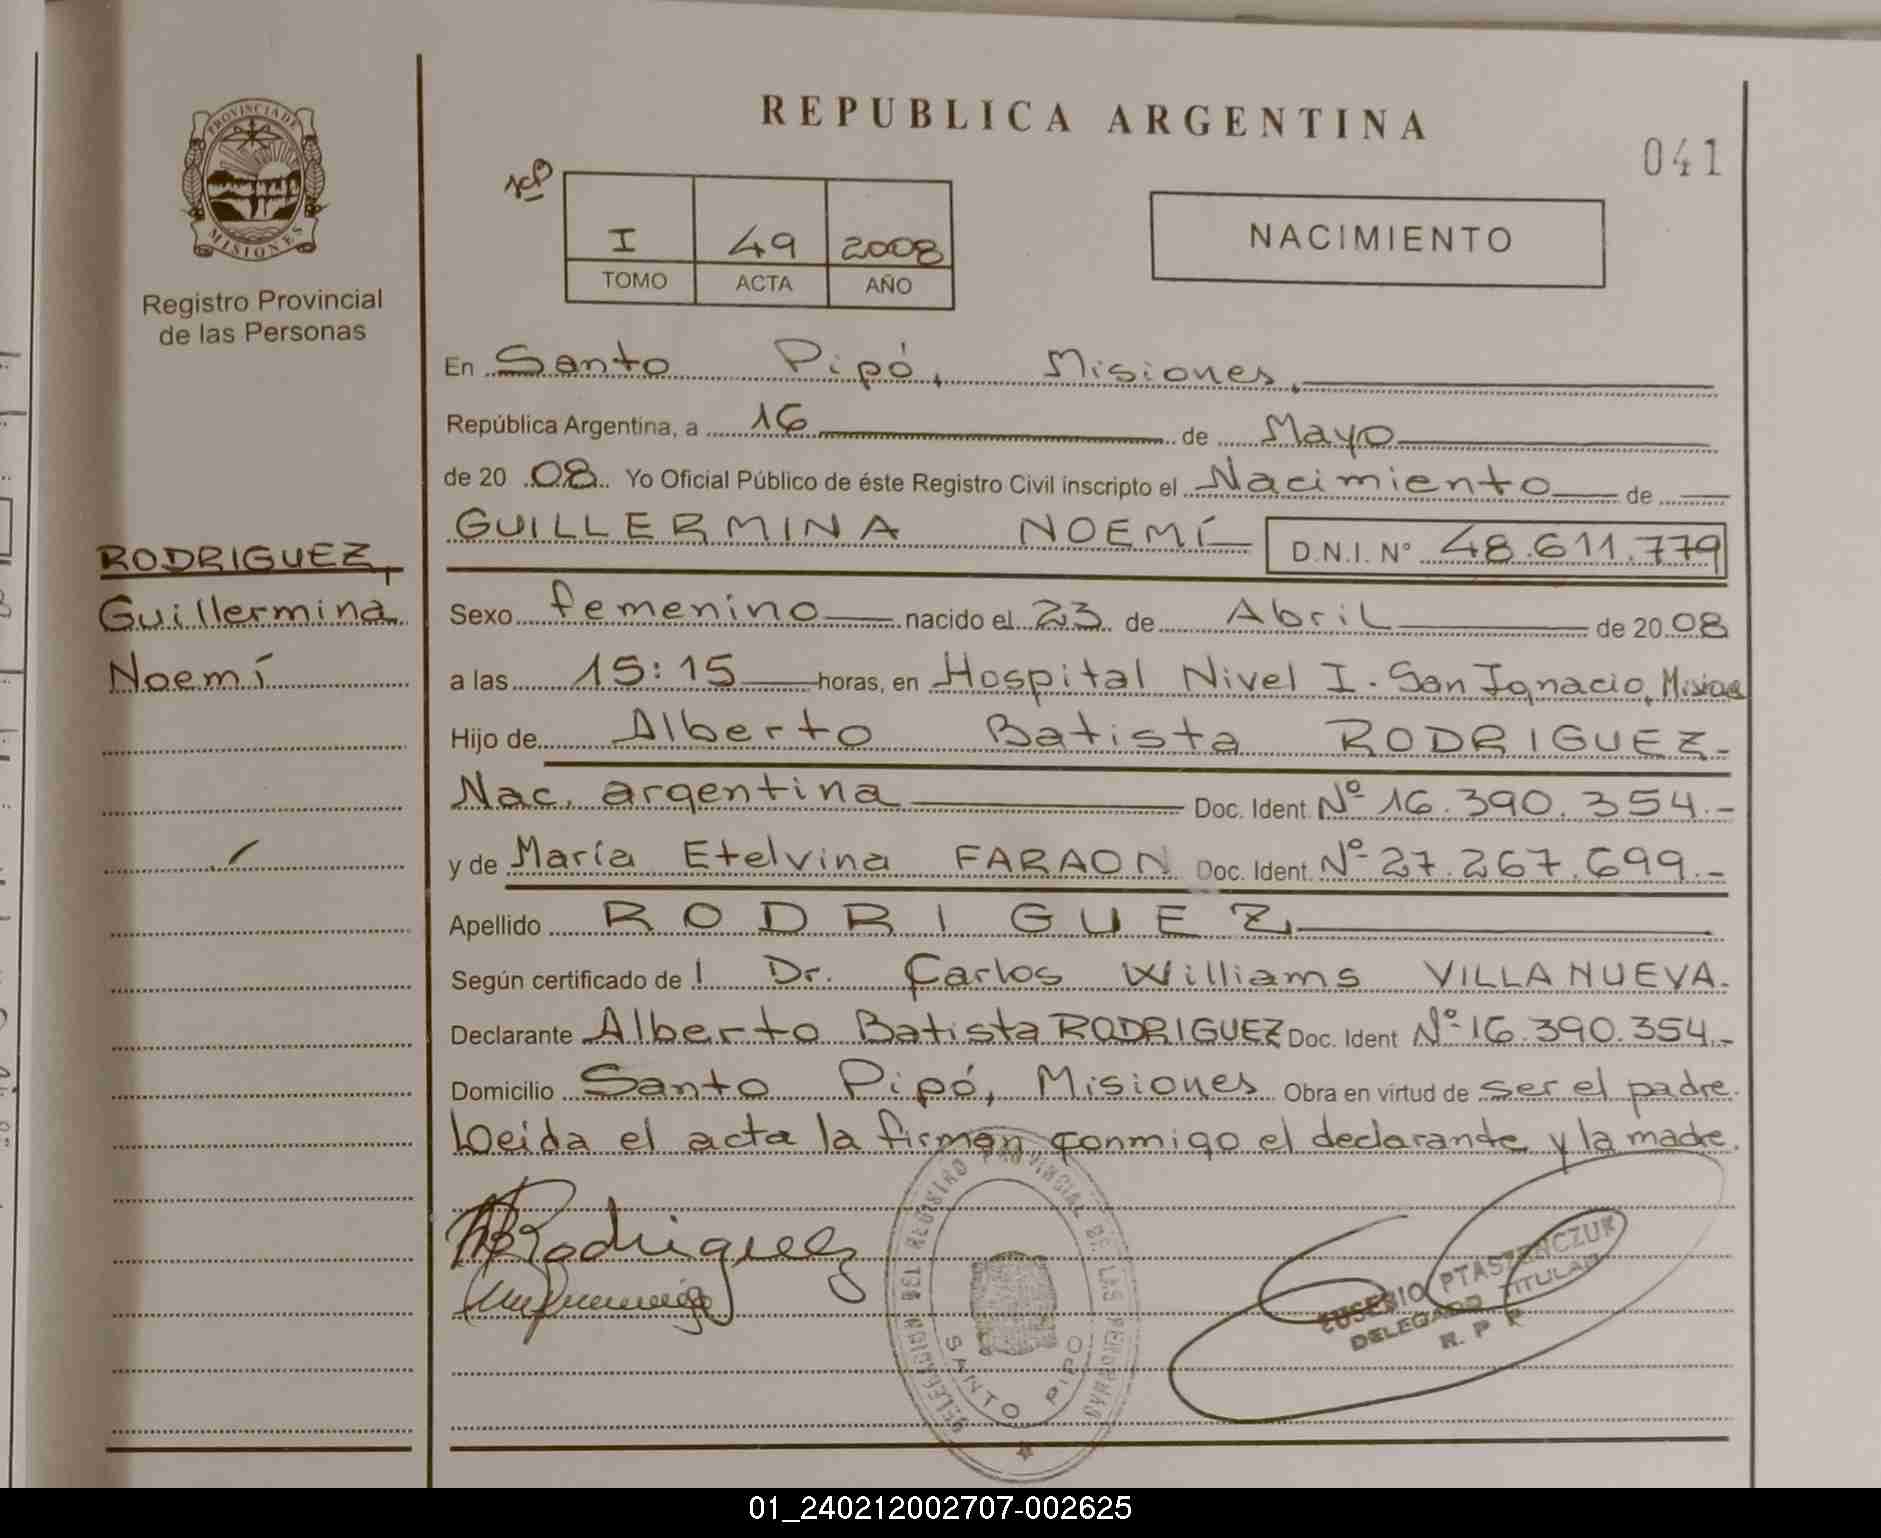 REPUBLICA ARGENTINA
041
PROVINCIA DE
MISIONES
Registro Provincial
de las Personas
Nº
I 49 2008
TOMO ACTA AÑO
NACIMIENTO
En Santo Pipó, Misiones,
República Argentina, a 16 de Mayo
de 2008 Yo Oficial Público de éste Registro Civil inscripto el Nacimiento de
GUILLERMINA NOEMÍ D.N.I. N° 48.611.779
RODRIGUEZ,
Guillermina
Noemí
Sexo femenino nacido el 23 de Abril de 2008
a las 15:15 horas, en Hospital Nivel I. San Ignacio, Misiones
Hijo de Alberto Batista RODRIGUEZ.-
Nac. argentina Doc. Ident. Nº 16.390.354.-
y de María Etelvina FARAON Doc. Ident. Nº 27.267.699.-
Apellido RODRIGUEZ
Según certificado de l Dr. Carlos Williams VILLANUEVA.
Declarante Alberto Batista RODRIGUEZ Doc. Ident Nº 16.390.354.-
Domicilio Santo Pipó, Misiones Obra en virtud de ser el padre.
Leida el acta la firman conmigo el declarante y la madre.
Rodriguez
DELEGACION REGISTRO PROVINCIAL DE LAS PERSONAS
SANTO PIPO
EUSEBIO PTASZENCZUK
DELEGADO TITULAR
R. P. P.
01_240212002707-002625